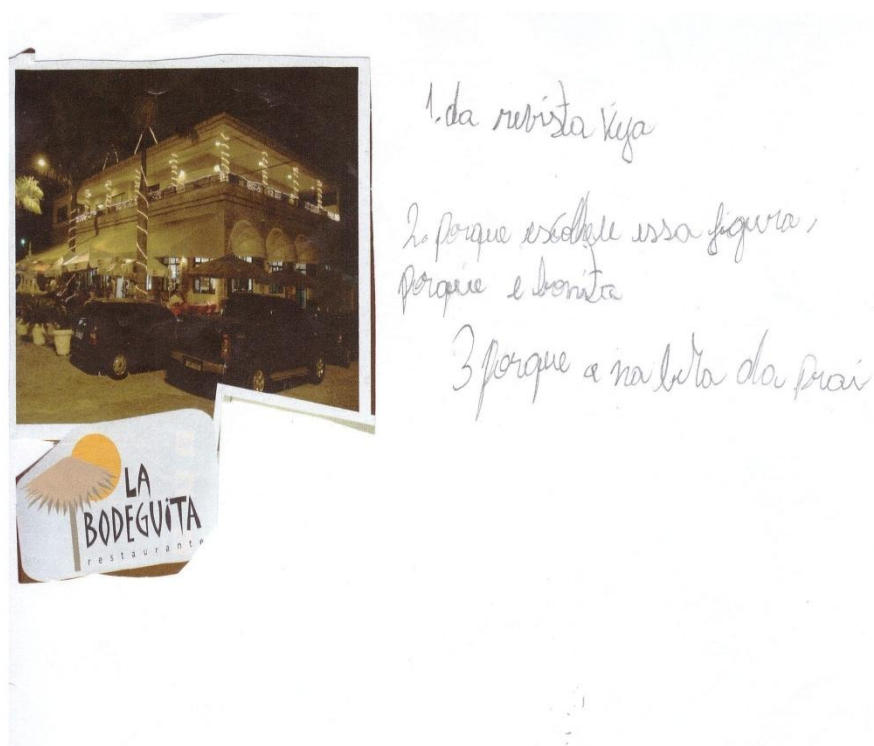 1. da revista Veja
2. porque escolhe essa figura,
porque e bonita
3 porque e na bira da prai
LA
BODEGUiTA
restaurante